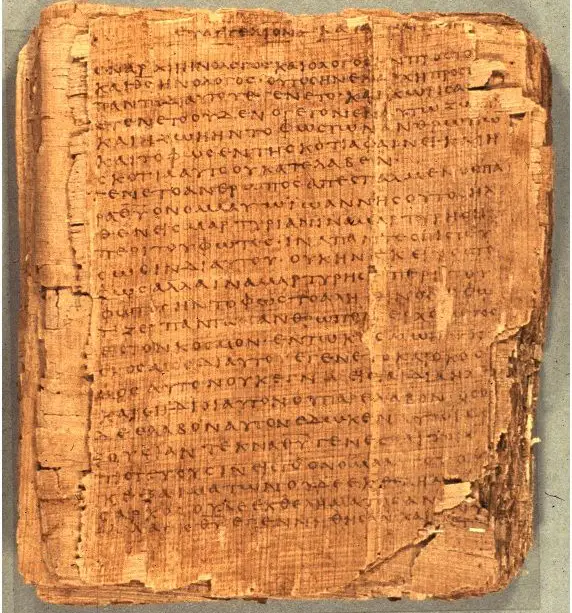 ΕΥΑΓΓΕΛΙΟΝ ΚΑΤΑ
ΕΝΑΡΧΗΗΝΟΛΟΓΟΣΚΑΙΟΛΟΓΟΣΗΝΠΡΟΣΤΟ
ΚΑΙΘΣΗΝΟΛΟΓΟΣ ΟΥΤΟΣΗΝΕΝΑΡΧΗΠΡΟΣΤ
ΠΑΝΤΑΔΙΑΥΤΟΥΕΓΕΝΕΤΟΚΑΙΧΩΡΙΣΑ
ΕΓΕΝΕΤΟΟΥΔΕΝΟΓΕΓΟΝΕΝΕΝΑΥΤΩΖΩ
ΚΑΙΗΖΩΗΗΝΤΟΦΩΣΤΩΝΑΝΘΡΩΠΩ
ΚΑΙΤΟΦΩΣΕΝΤΗΣΚΟΤΙΑΦΑΙΝΕΙΚΑΙΗ
ΣΚΟΤΙΑΑΥΤΟΟΥΚΑΤΕΛΑΒΕΝ
ΕΓΕΝΕΤΟΑΝΘΡΩΠΟΣΑΠΕΣΤΑΛΜΕΝΟΣΠΑ
ΡΑΘΥΟΝΟΜΑΑΥΤΩΙΩΑΝΝΗΣΟΥΤΟΣΗΛ
ΘΕΝΕΙΣΜΑΡΤΥΡΙΑΝΙΝΑΜΑΡΤΥΡΗΣΗ
ΠΕΡΙΤΟΥΦΩΤΟΣΙΝΑΠΑΝΤΕΣΠΙΣΤΕΥ
ΣΩΣΙΝΔΙΑΥΤΟΥΟΥΚΗΝΕΚΕΙΝΟΣΤΟ
ΦΩΣΑΛΛΑΙΝΑΜΑΡΤΥΡΗΣΗΠΕΡΙΤΟΥ
ΦΩΤΟΣΗΝΤΟΦΩΣΤΟΑΛΗΘΙΝΟΝΟΦΩ
ΤΙΖΕΙΠΑΝΤΑΑΝΘΡΩΠΟΝΕΡΧΟΜΕΝΟΝ
ΕΙΣΤΟΝΚΟΣΜΟΝΕΝΤΩΚΟΣΜΩΗΝ
ΚΟΣΜΟΣΔΙΑΥΤΟΥΕΓΕΝΕΤΟΚΑΙΟΚΟΣ
ΜΟΣΑΥΤΟΝΟΥΚΕΓΝΩΕΙΣΤΑΙΔΙΑΗΛΘΕ
ΚΑΙΟΙΙΔΙΟΙΑΥΤΟΝΟΥΠΑΡΕΛΑΒΟΝΟΣΟΙ
ΔΕΕΛΑΒΟΝΑΥΤΟΝΕΔΩΚΕΝΑΥΤΟΙΣΕ
ΞΟΥΣΙΑΝΤΕΚΝΑΘΥΓΕΝΕΣΘΑΙ
ΠΙΣΤΕΥΟΥΣΙΝΕΙΣΤΟΟΝΟΜΑ
ΑΙΜΑΤΩΝΟΥΔΕΕΚΘΕΛΗΜΑ
ΟΥΔΕΕΚΘΕΛΗΜΑΤΟΣΑΝ
ΑΛΛΕΚΘΥΕΓΕΝΝΗΘΗΣΑΝΚΑΙ